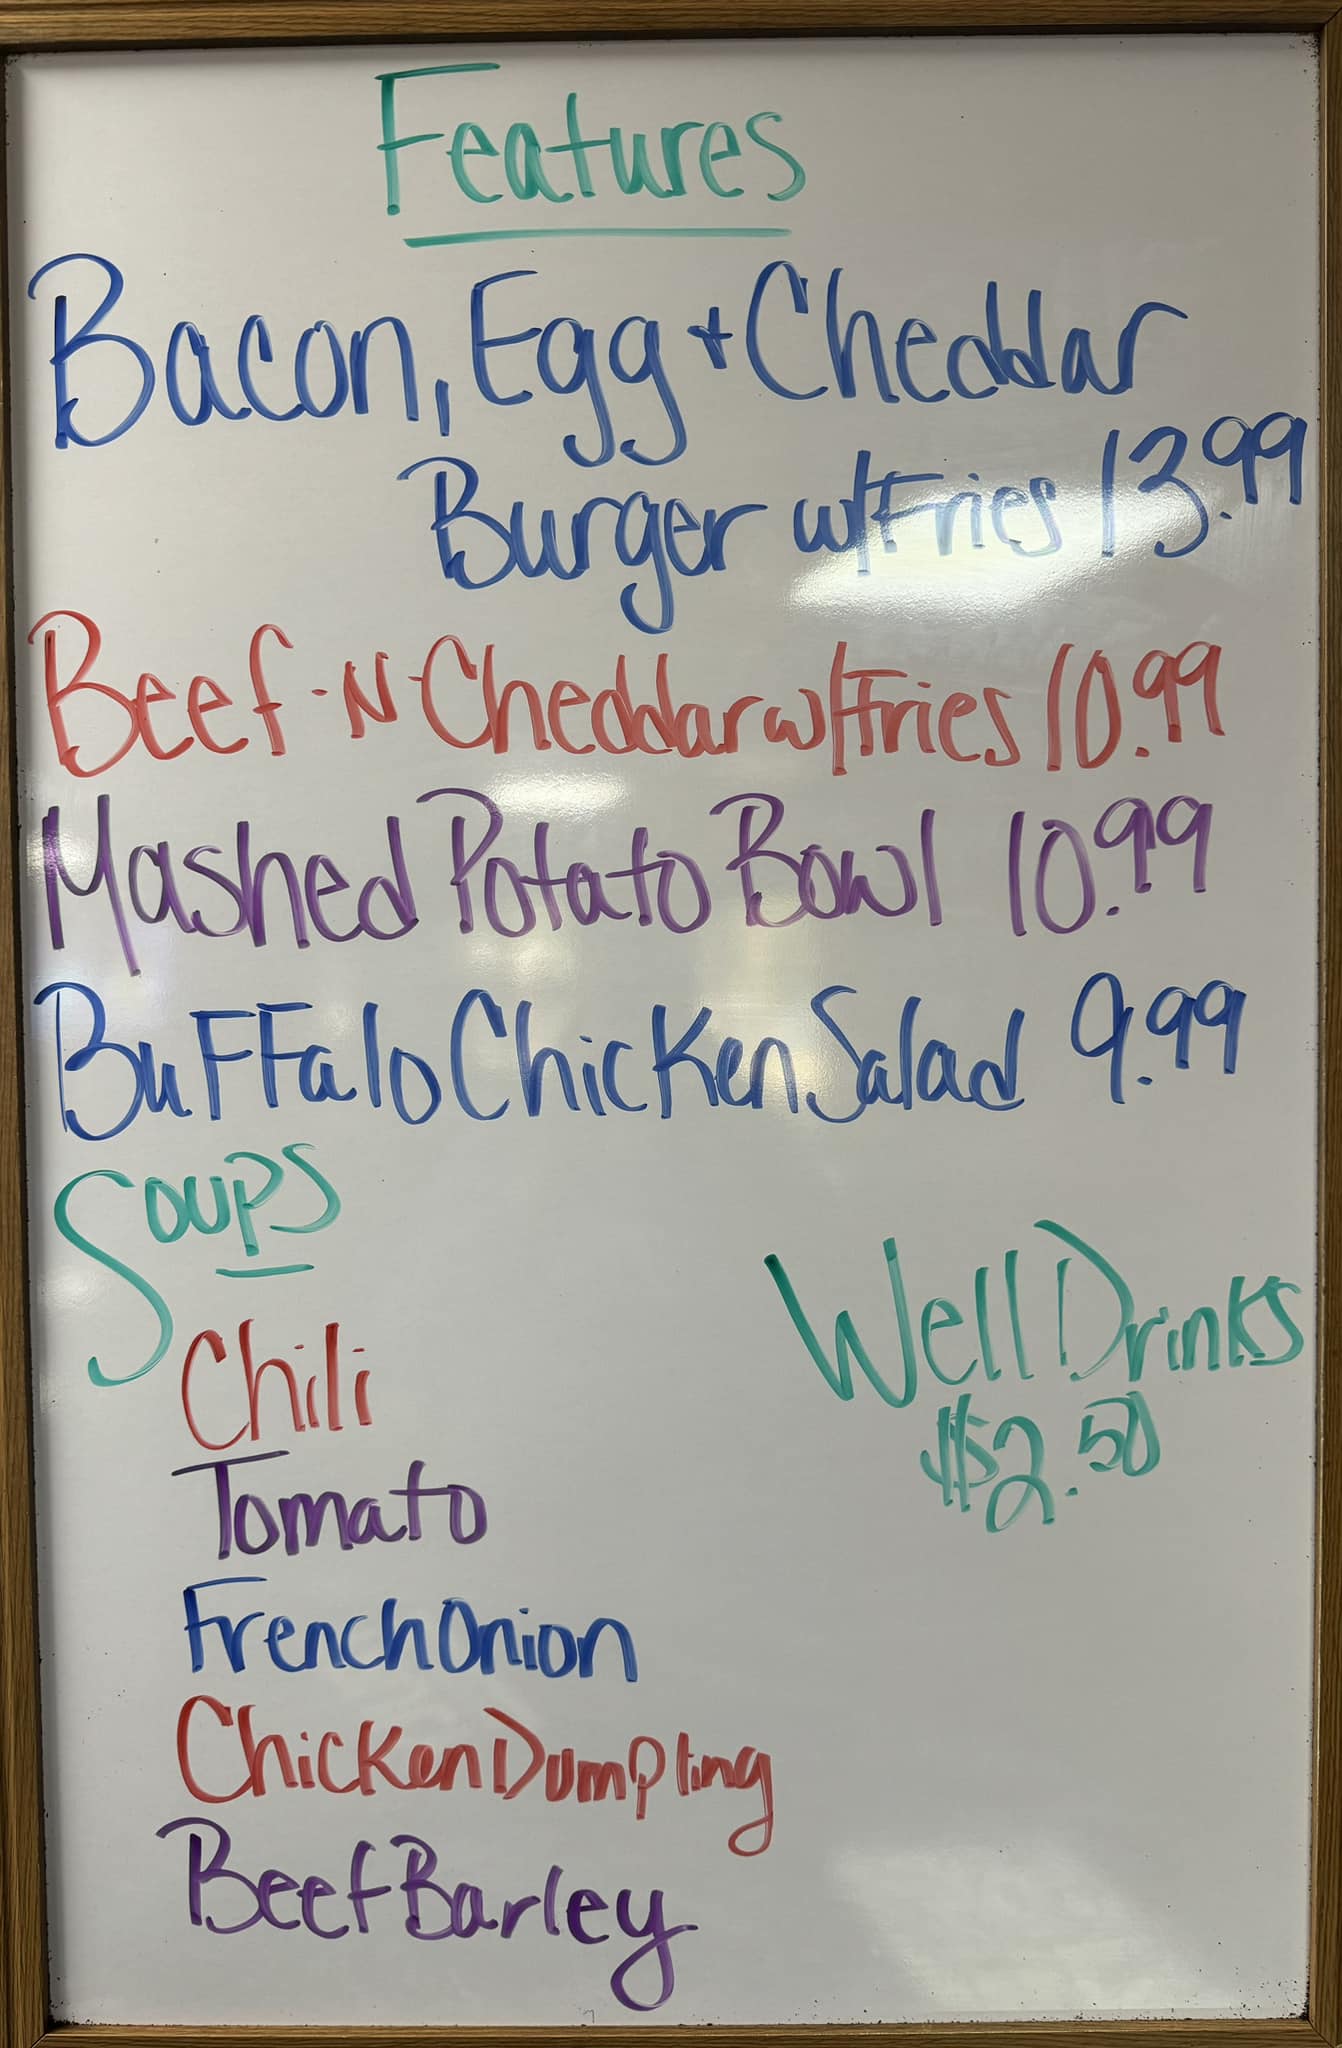 Features
Bacon, Egg + Cheddar
Burger w/Fries 13.99
Beef-N-Cheddar w/Fries 10.99
Mashed Potato Bowl 10.99
Buffalo Chicken Salad 9.99
Soups
Chili
Tomato
French Onion
Chicken Dumpling
Beef Barley
Well Drinks
$2.50